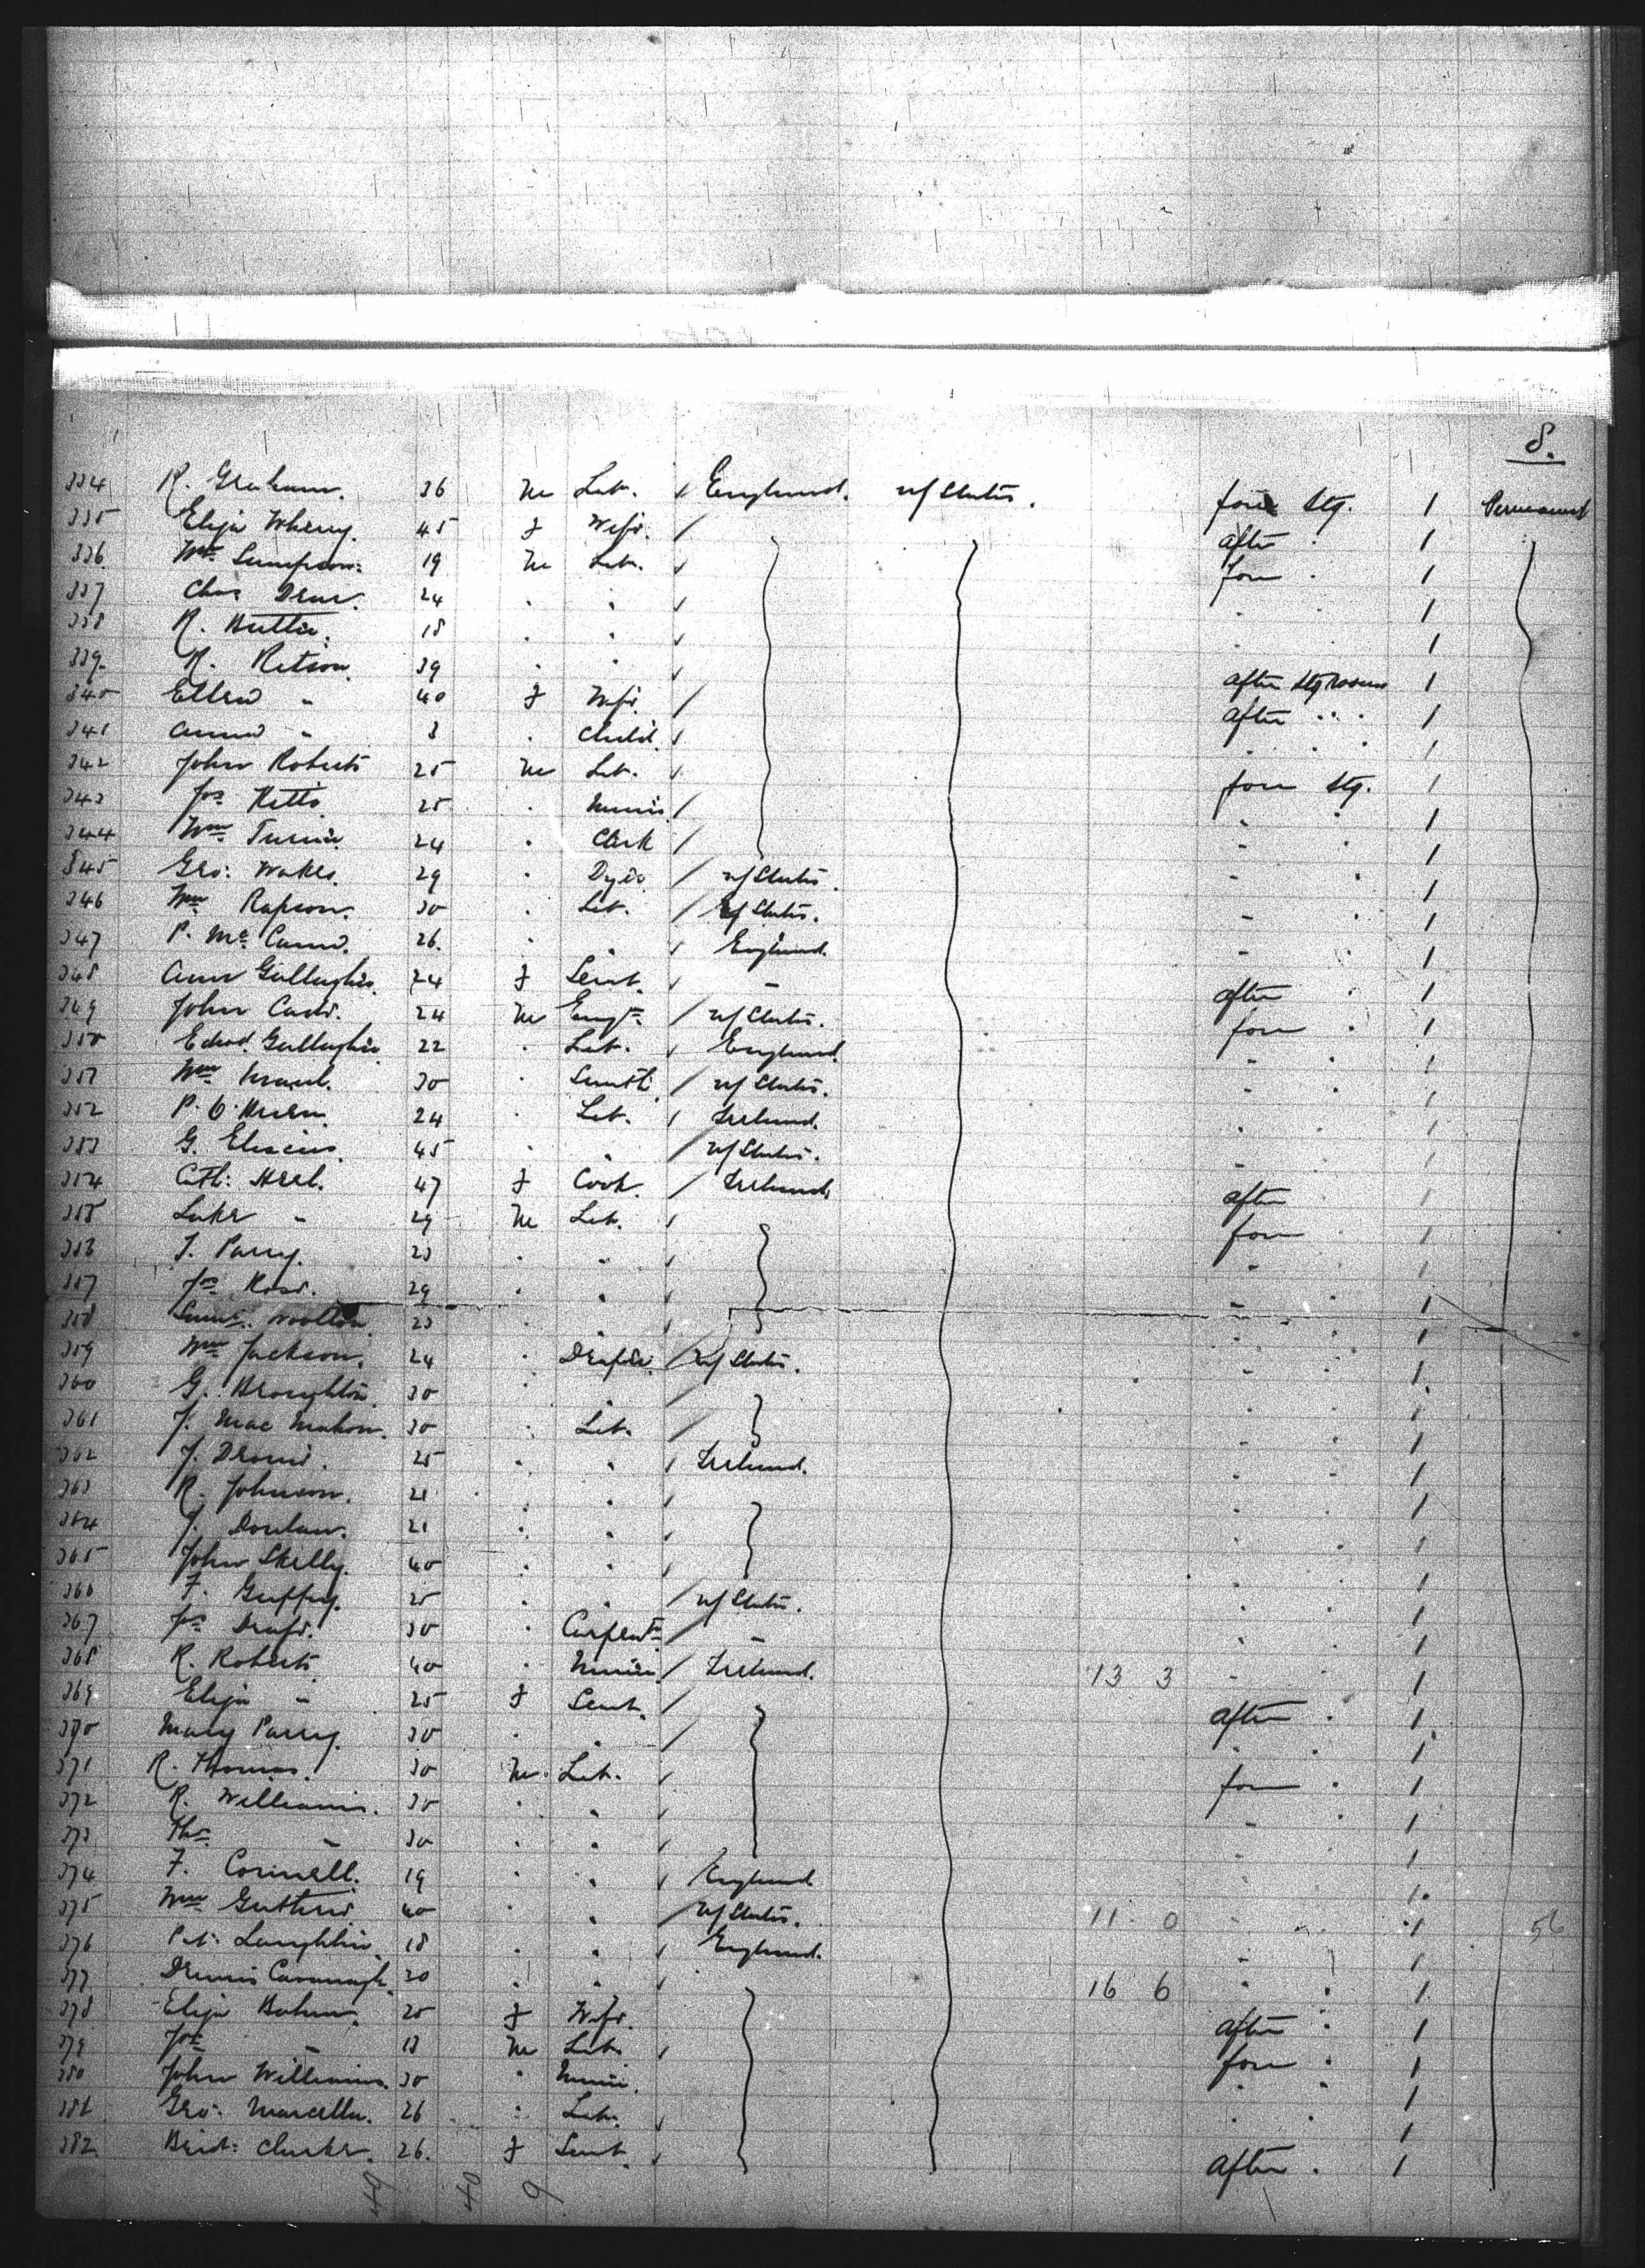 8.
334 R. Graham. 36 m Lab. England. U/States. fore Stg. 1 Permanent
335 Eliza Wherry. 45 f Wife. after " 1
336 Wm Sampson. 19 m Lab. fore " 1
337 Chas 24 " " 1
338 R. 18 " " 1
339 R. Ritson. 39 " " after Stg Rooms 1
340 Ellen " 40 f Wife. after " " 1
341 Annie " 3 " Child. " " 1
342 John Roberts 25 m Lab. fore Stg. 1
343 Jas Kitto 25 " Miner " " 1
344 Wm Turner 24 " Clerk " " 1
345 Geo: Wakes. 29 " Dyer U/States. " " 1
346 Wm Rapson. 30 " Lab. U/States. " " 1
347 P. McCann. 26. " " England. " " 1
348 Ann Gallagher. 24 f Servt. " after " 1
349 John 24 m Engr. U/States. fore " 1
350 Edwd. Gallagher 22 " Lab. England. " " 1
351 Wm 30 " Smith U/States. " " 1
352 P. O'Brien 24 " Lab. Ireland. " " 1
353 G. 45 " " U/States. " " 1
354 Cath: 47 f Cook. Ireland. after 1
355 Luke " 29 m Lab. fore " 1
356 T. Parry. 23 " " " " 1
357 Jas Ross. 29 " " " " 1
358 Saml. Woolton 23 " " " " 1
359 Wm Jackson. 24 " Draper U/States. " " 1
360 G. Broughton. 30 " " " " 1
361 J. Mac Mahon. 30 " Lab. " " 1
362 J. 25 " " Ireland. " " 1
363 R. Johnson. 21 " " " " 1
364 J. 21 " " " " 1
365 John Skelly. 40 " " " " 1
366 F. 25 " " U/States. " " 1
367 Jas 30 " Carpentr " " " 1
368 R. Roberts 40 " Miner Ireland. 13 3 " 1
369 Eliza " 25 f Servt. after " 1
370 Mary Parry. 30 " " " " 1
371 R. Thomas. 30 m Lab. fore " 1
372 R. Williams. 30 " " " " 1
373 Thos " 30 " " " 1
374 F. Cornwell. 19 " " England " 1
375 Wm Guthrie 40 " " U/States. 11 0 " " 1 56
376 Pat: Laughlin 18 " " England. " 1
377 Dennis Cavanagh 20 " " 16 6 " " 1
378 Eliza 25 f Wife. after " 1
379 Jos " 13 m Lab fore " 1
380 John Williams. 30 " Miner. " " 1
381 Geo: Marcella. 26 " Lab. " " 1
382 Brid: Clarke. 26. f Servt. after " 1
49 40 9